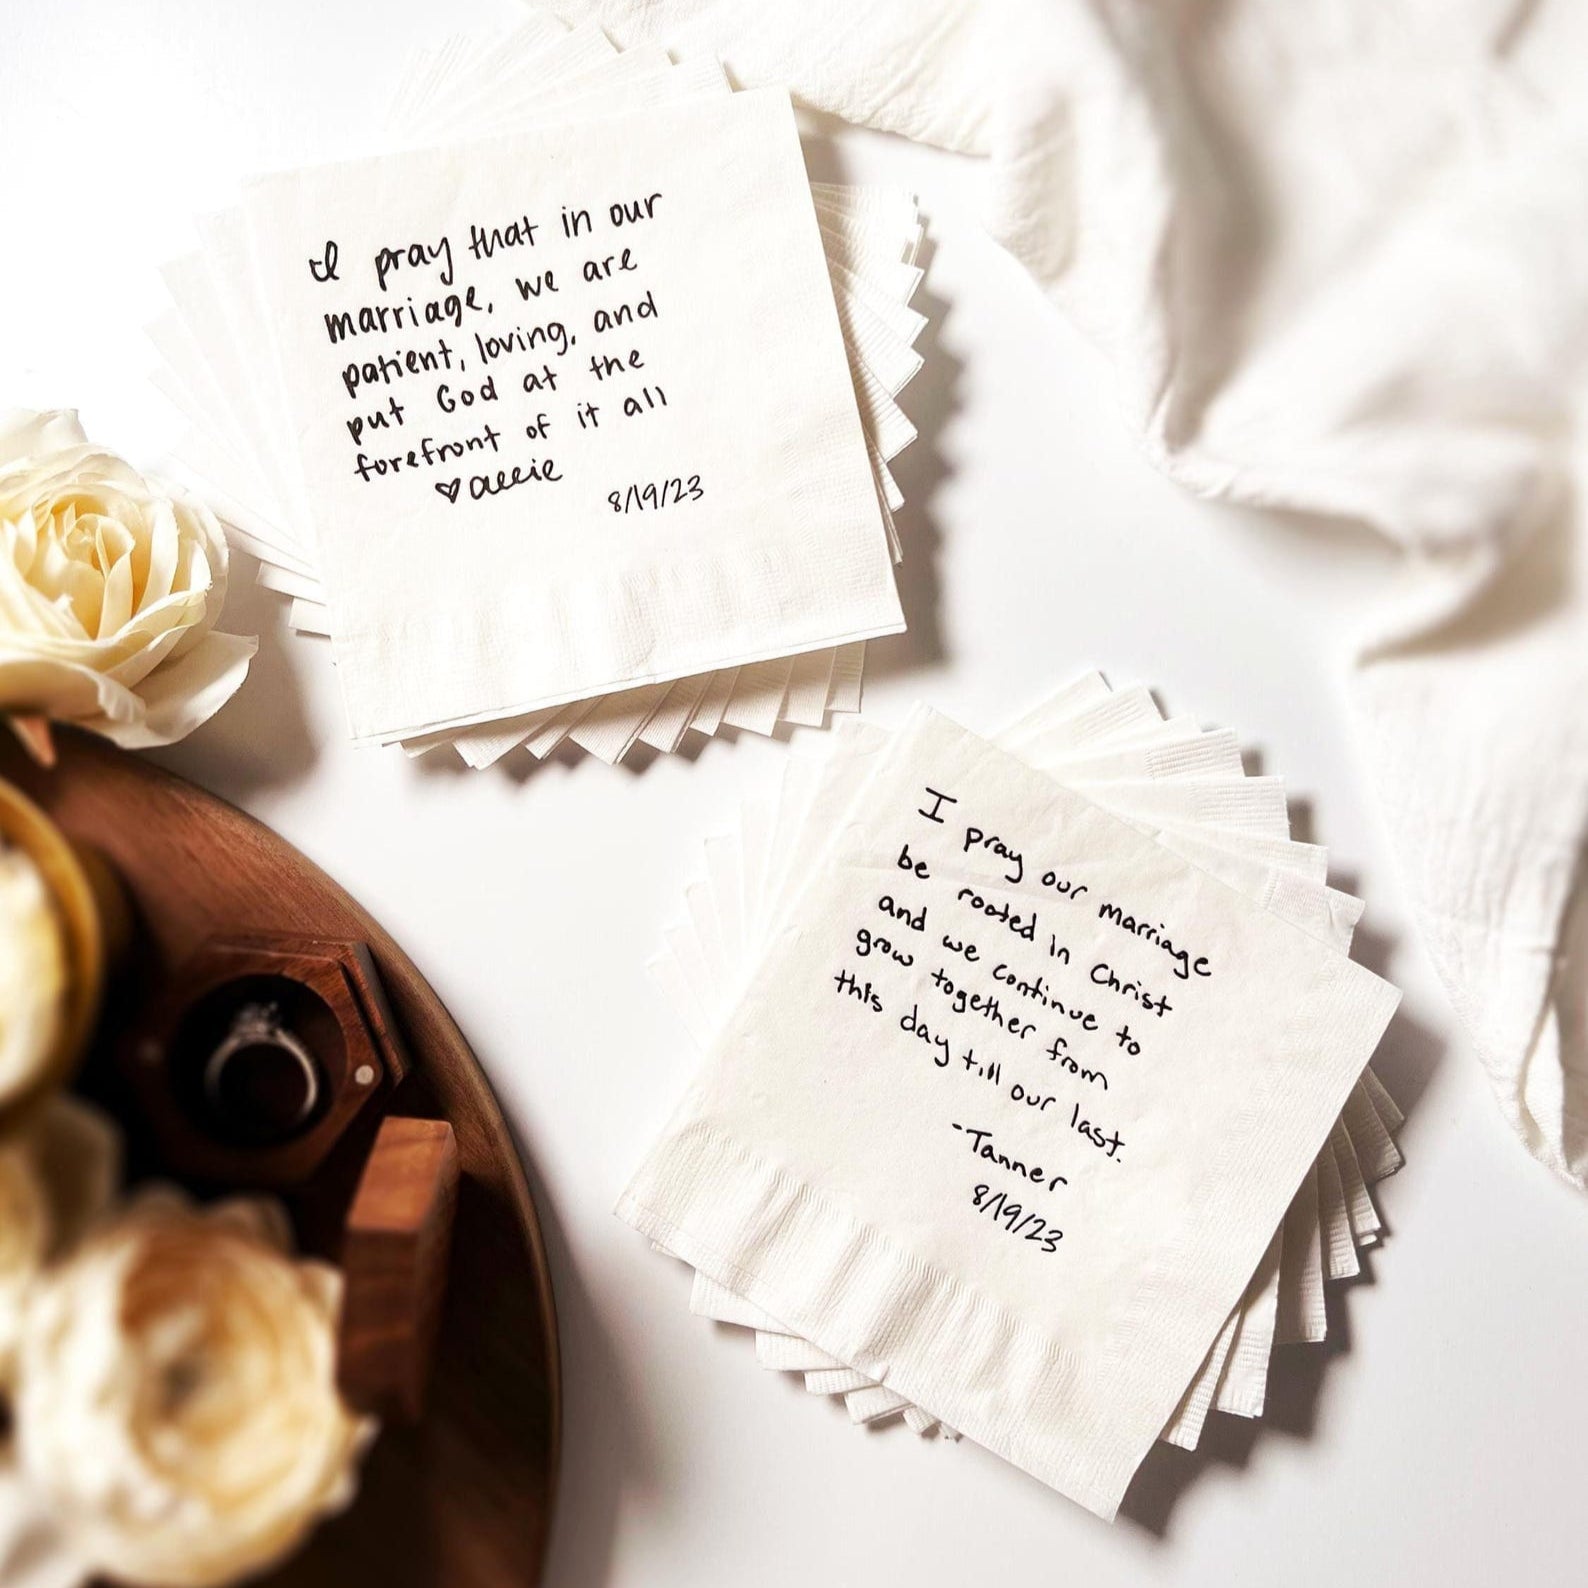 I pray that in our
marriage, we are
patient, loving, and
put God at the
forefront of it all
♡ allie
8/19/23
I pray our marriage
be rooted in Christ
and we continue to
grow together from
this day till our last.
-Tanner
8/19/23